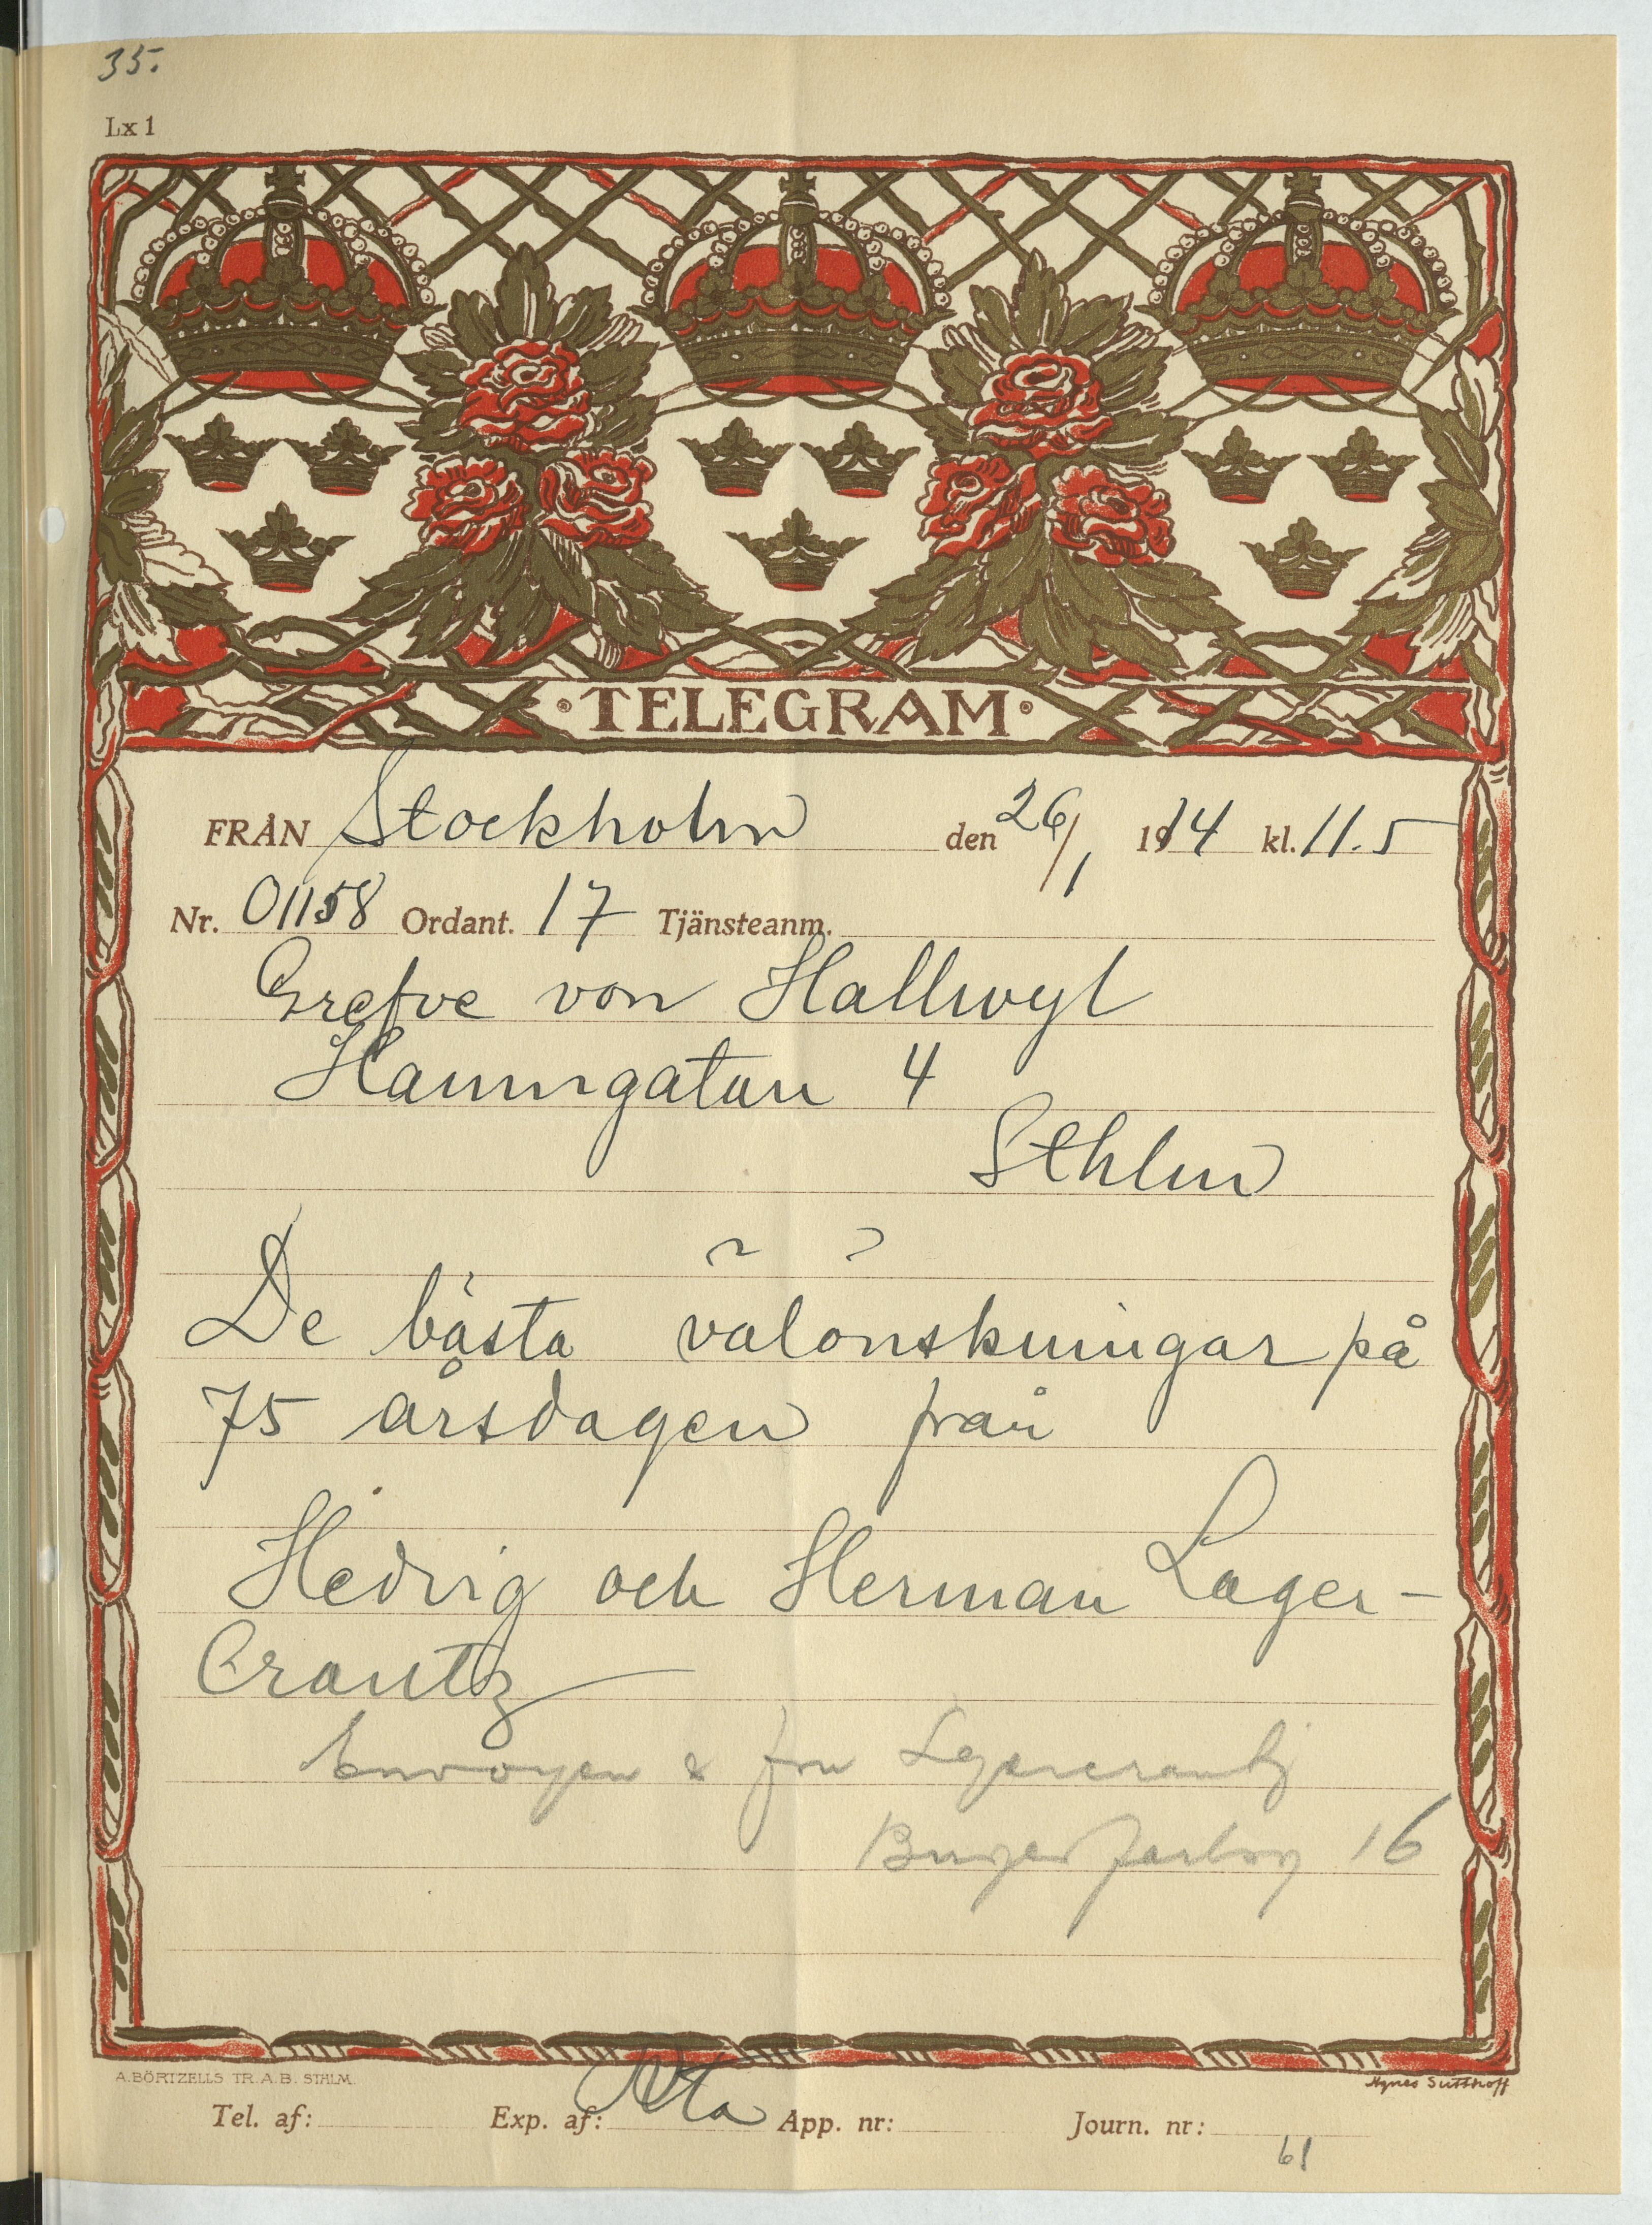 35.
Lx 1
TELEGRAM
FRÅN Stockholm den 26/1 1914 kl. 11.5
Nr. 01158 Ordant. 17 Tjänsteanm.
Grefve von Hallwyl
Hamngatan 4
Sthlm
De bästa välönskningar på
75 årsdagen från
Hedvig och Herman Lager-
Crantz
Envoyen & fru Lagercrantz
16
A. BÖRTZELLS TR. A. B. STHLM.
Agnes Sutthoff
Tel. af: Exp. af: App. nr: Journ. nr:
61